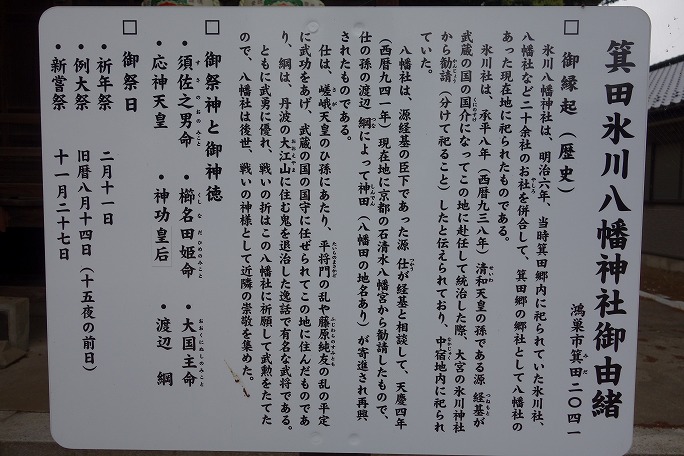 箕田氷川八幡神社御由緒
鴻巣市箕田二〇四一
みだ
□ 御縁起（歴史）
氷川八幡神社は、明治六年、当時箕田郷内に祀られていた氷川社、
八幡社など二十余社のお社を併合して、箕田郷の郷社として八幡社の
やしろ
あった現在地に祀られたものである。
氷川社は、承平八年（西暦九三八年）清和天皇の孫である源 経基が
せいわ
つねもと
武蔵の国の国介になってこの地に赴任して統治した際、大宮の氷川神社
くにすけ
から勧請（分けて祀ること）したと伝えられており、中宿地内に祀られ
かんじょう
なかじゅく
ていた。
八幡社は、源経基の臣下であった源 仕が経基と相談して、天慶四年
つかう
（西暦九四一年）現在地に京都の石清水八幡宮から勧請したもので、
仕の孫の渡辺 綱によって神田（八幡田の地名あり）が寄進され再興
つな
しんでん
されたものである。
仕は、嵯峨天皇のひ孫にあたり、平将門の乱や藤原純友の乱の平定
さが
たいらのまさかど
ふじわらのすみとも
に武功をあげ、武蔵の国の国守に任ぜられてこの地に住んだものであ
り、綱は、丹波の大江山に住む鬼を退治した逸話で有名な武将である。
おおえやま
ともに武勇に優れ、戦いの折はこの八幡社に祈願して武勲をたてた
ので、八幡社は後世、戦いの神様として近隣の崇敬を集めた。
□ 御祭神と御神徳
・須佐之男命 ・櫛名田姫命 ・大国主命
すさのおのみこと
くしなだひめのみこと
おおくにぬしのみこと
・応神天皇 ・神功皇后 ・渡辺 綱
□ 御祭日
・祈年祭 二月十一日
・例大祭 旧暦八月十四日（十五夜の前日）
・新嘗祭 十一月二十七日